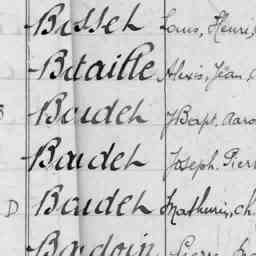 Bissel Louis, Henri,
Bataille Alexis, Jean,
Baudet J Bapt. Aaro
Baudet Joseph. Pierr
D Baudet Mathurin, Ch
Baudoin Pierre